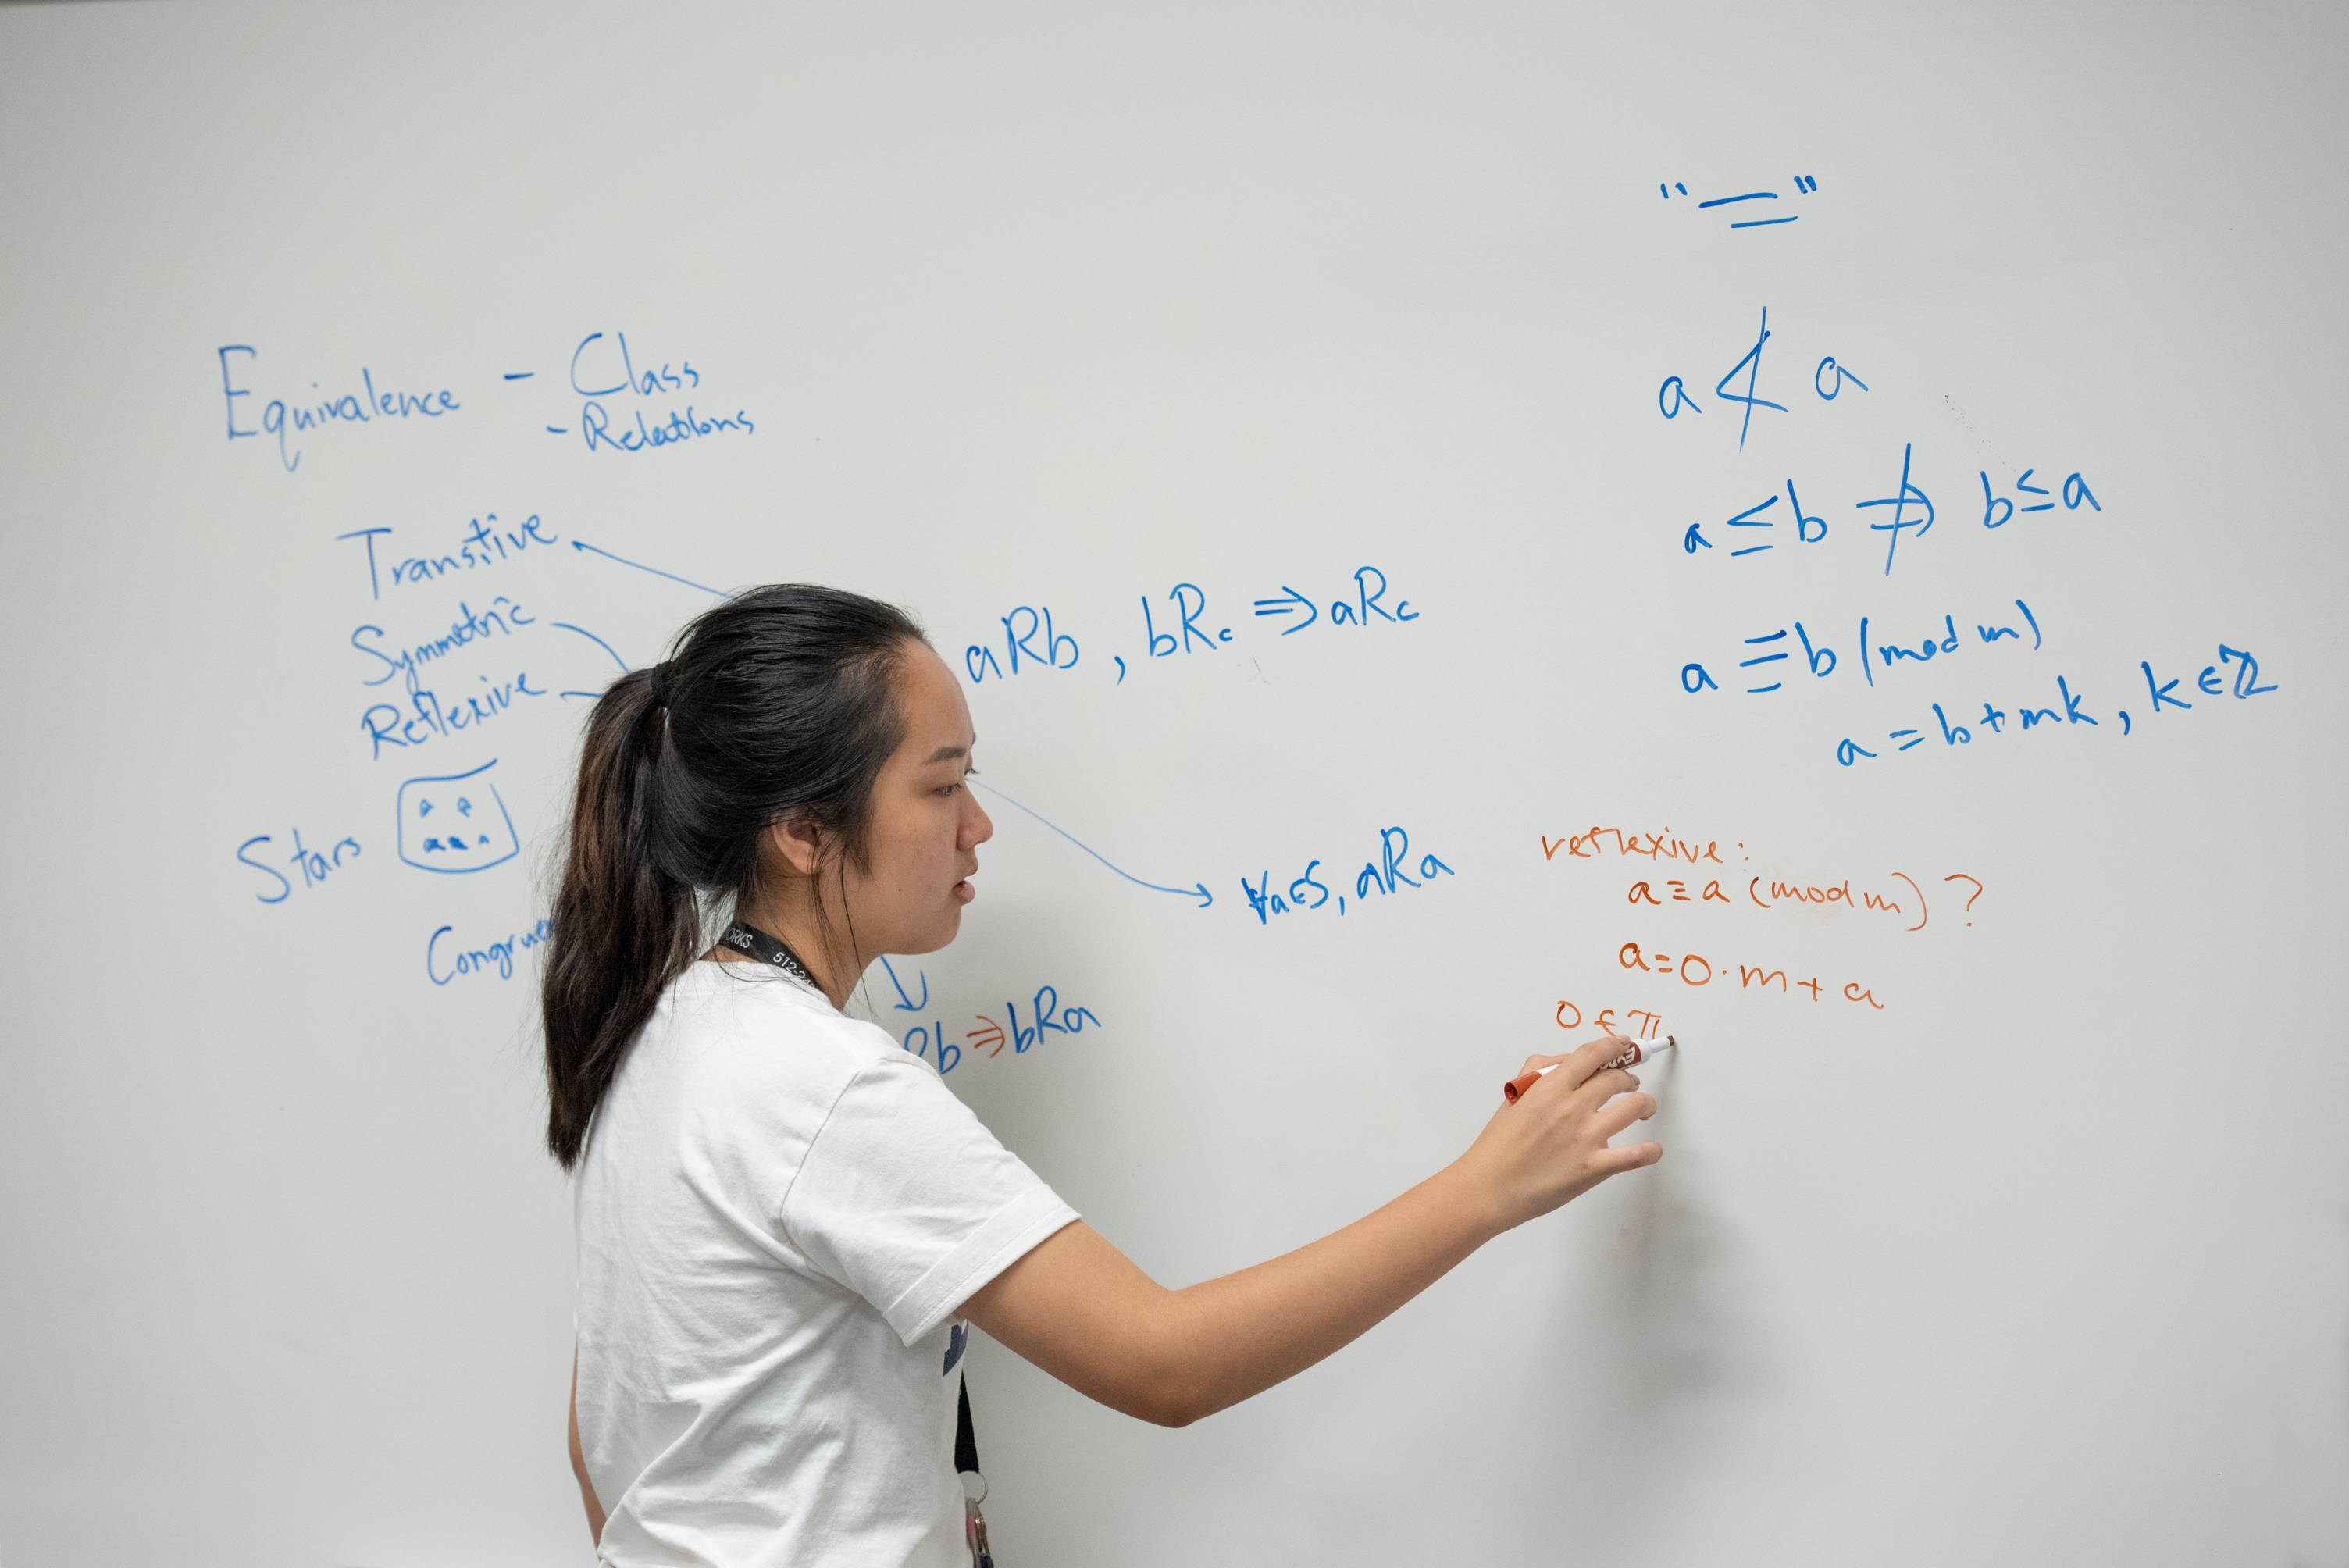 Equivalence - Class
- Relations
Transitive
Symmetric
Reflexive
Stars
aRb, bRc ⇒ aRc
∀a∈S, aRa
b ⇒ bRa
"="
a ≮ a
a ≤ b ⇏ b ≤ a
a ≡ b (mod m)
a = b + mk, k ∈ ℤ
reflexive:
a ≡ a (mod m) ?
a = 0·m + a
0 ∈
ORKS
512-2